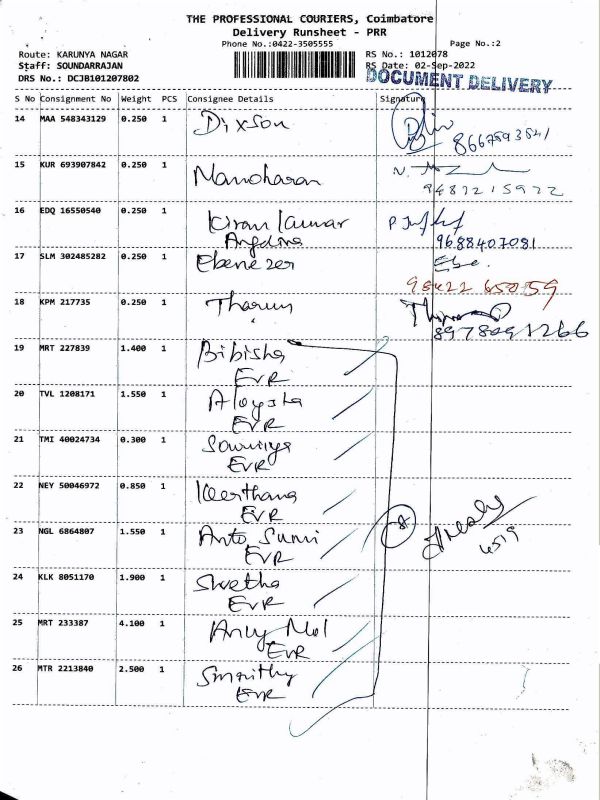 THE PROFESSIONAL COURIERS, Coimbatore
Delivery Runsheet - PRR
Phone No.:0422-3505555
Page No.:2
Route: KARUNYA NAGAR
RS No.: 1012078
Staff: SOUNDARRAJAN
RS Date: 02-Sep-2022
DRS No.: DCJB101207802
DOCUMENT DELIVERY
S No Consignment No Weight PCS Consignee Details Signature
14 MAA 548343129 0.250 1 Dixson
15 KUR 693907842 0.250 1 Manoharan
9487215922
16 EDQ 16550540 0.250 1 Kiran Kumar
Angelina 9688407081
17 SLM 302485282 0.250 1 Ebenezer Ebe.
98422 65059
18 KPM 217735 0.250 1 Tharun
19 MRT 227839 1.400 1 Bibisha
EVR
20 TVL 1208171 1.550 1 Aloysia
EVR
21 TMI 40024734 0.300 1 Sowmiya
EVR
22 NEY 50046972 0.850 1 Keerthana
EVR
23 NGL 6864807 1.550 1 Anto Sumi 8
EVR 4519
24 KLK 8051170 1.900 1 Swetha
EVR
25 MRT 233387 4.100 1 Ancy Mol
EVR
26 MTR 2213840 2.500 1 Smrithy
EVR